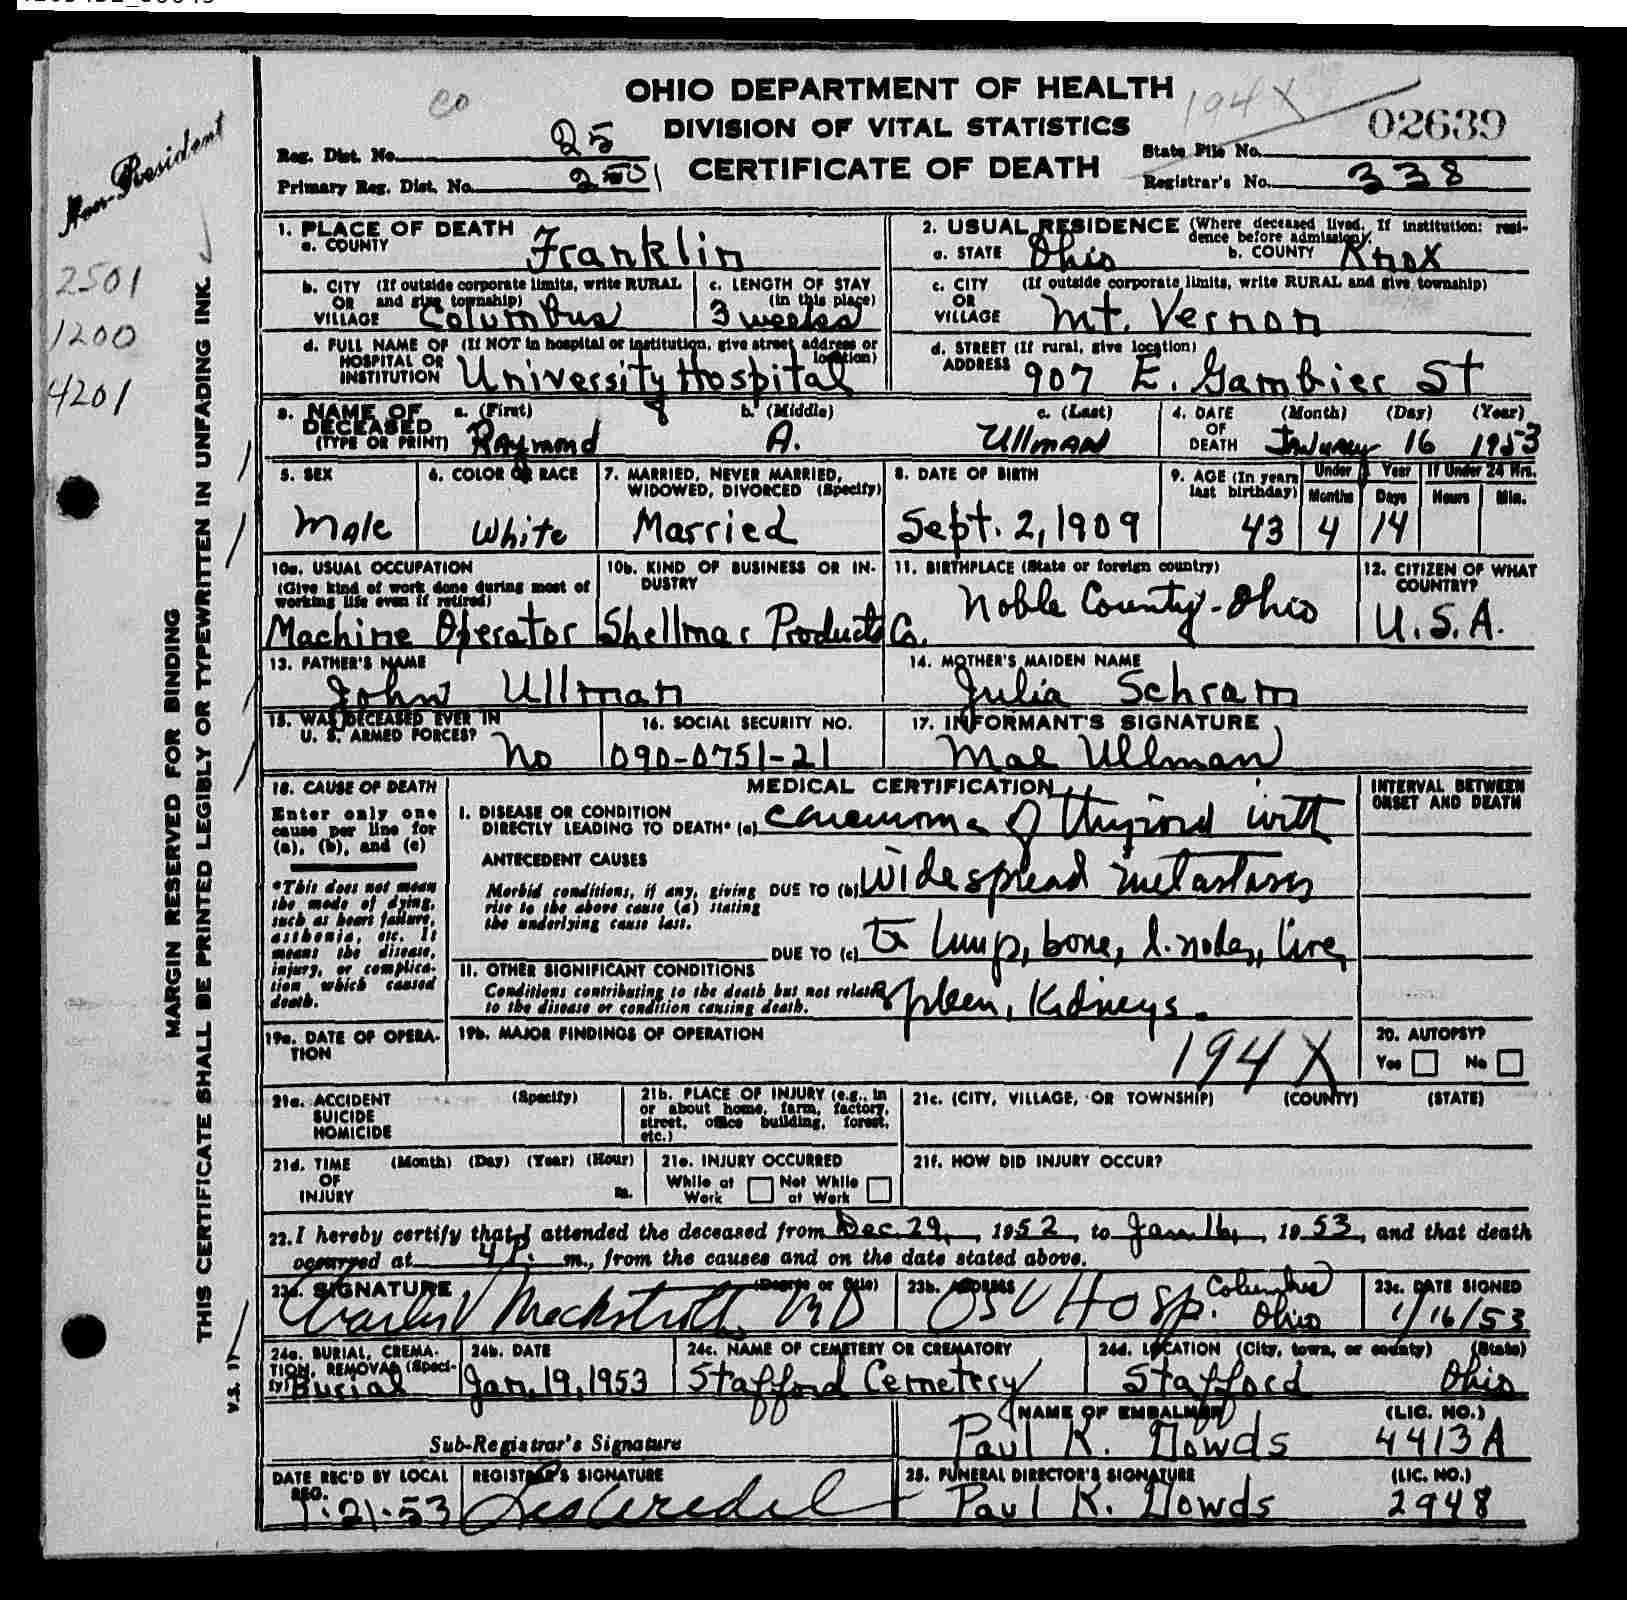 OHIO DEPARTMENT OF HEALTH
DIVISION OF VITAL STATISTICS
CERTIFICATE OF DEATH
Co
194X
02639
Reg. Dist. No. 25
Primary Reg. Dist. No. 2501
State File No.
Registrar's No. 338
Non-Resident
2501
1200
4201
MARGIN RESERVED FOR BINDING
THIS CERTIFICATE SHALL BE PRINTED LEGIBLY OR TYPEWRITTEN IN UNFADING INK.
V.S. 1
1. PLACE OF DEATH
a. COUNTY Franklin
b. CITY (If outside corporate limits, write RURAL
OR and give township)
VILLAGE Columbus
c. LENGTH OF STAY
(in this place)
3 weeks
d. FULL NAME OF (If NOT in hospital or institution, give street address or
location)
HOSPITAL OR
INSTITUTION University Hospital
2. USUAL RESIDENCE (Where deceased lived. If institution: resi-
dence before admission).
a. STATE Ohio b. COUNTY Knox
c. CITY (If outside corporate limits, write RURAL and give township)
OR
VILLAGE Mt. Vernon
d. STREET (If rural, give location)
ADDRESS 907 E. Gambier St
3. NAME OF DECEASED
(TYPE OR PRINT)
a. (First) b. (Middle) c. (Last)
Raymond A. Ullman
4. DATE OF DEATH (Month) (Day) (Year)
January 16 1953
5. SEX
Male
6. COLOR OR RACE
White
7. MARRIED, NEVER MARRIED,
WIDOWED, DIVORCED (Specify)
Married
8. DATE OF BIRTH
Sept. 2, 1909
9. AGE (In years
last birthday)
43
Under 1 Year
Months Days
4 14
If Under 24 Hrs.
Hours Min.
10a. USUAL OCCUPATION
(Give kind of work done during most of
working life even if retired)
Machine Operator
10b. KIND OF BUSINESS OR IN-
DUSTRY
Shellmar Products Co.
11. BIRTHPLACE (State or foreign country)
Noble County-Ohio
12. CITIZEN OF WHAT
COUNTRY?
U.S.A.
13. FATHER'S NAME
John Ullman
14. MOTHER'S MAIDEN NAME
Julia Schram
15. WAS DECEASED EVER IN
U. S. ARMED FORCES?
No
16. SOCIAL SECURITY NO.
090-0751-21
17. INFORMANT'S SIGNATURE
Mae Ullman
18. CAUSE OF DEATH
Enter only one
cause per line for
(a), (b), and (c)
*This does not mean
the mode of dying,
such as heart failure,
asthenia, etc. It
means the disease,
injury, or complica-
tion which caused
death.
MEDICAL CERTIFICATION
INTERVAL BETWEEN
ONSET AND DEATH
I. DISEASE OR CONDITION
DIRECTLY LEADING TO DEATH* (a) Carcinoma of thyroid with
ANTECEDENT CAUSES
Morbid conditions, if any, giving
rise to the above cause (a) stating
the underlying cause last.
DUE TO (b) Widespread metastases
DUE TO (c) to lung, bone, l. nodes, liver,
II. OTHER SIGNIFICANT CONDITIONS
Conditions contributing to the death but not related
to the disease or condition causing death.
spleen, kidneys.
19a. DATE OF OPERA-
TION
19b. MAJOR FINDINGS OF OPERATION
194X
20. AUTOPSY?
Yes No
21a. ACCIDENT (Specify)
SUICIDE
HOMICIDE
21b. PLACE OF INJURY (e.g., in
or about home, farm, factory,
street, office building, forest,
etc.)
21c. (CITY, VILLAGE, OR TOWNSHIP) (COUNTY) (STATE)
21d. TIME (Month) (Day) (Year) (Hour)
OF
INJURY m.
21e. INJURY OCCURRED
While at Work Not While at Work
21f. HOW DID INJURY OCCUR?
22. I hereby certify that I attended the deceased from Dec. 29, 1952, to Jan. 16, 1953, and that death
occurred at 4 P. m., from the causes and on the date stated above.
23a. SIGNATURE (Degree or title)
Charles V Meckstroth MD
23b. ADDRESS
OSU Hosp. Columbus
Ohio
23c. DATE SIGNED
1/16/53
24a. BURIAL, CREMA-
TION, REMOVAL (Speci-
fy) Burial
24b. DATE
Jan. 19, 1953
24c. NAME OF CEMETERY OR CREMATORY
Stafford Cemetery
24d. LOCATION (City, town, or county) (State)
Stafford Ohio
Sub-Registrar's Signature
NAME OF EMBALMER (LIC. NO.)
Paul K. Dowds 4413A
DATE REC'D BY LOCAL
REG.
1-21-53
REGISTRAR'S SIGNATURE
25. FUNERAL DIRECTOR'S SIGNATURE (LIC. NO.)
Paul K. Dowds 2948